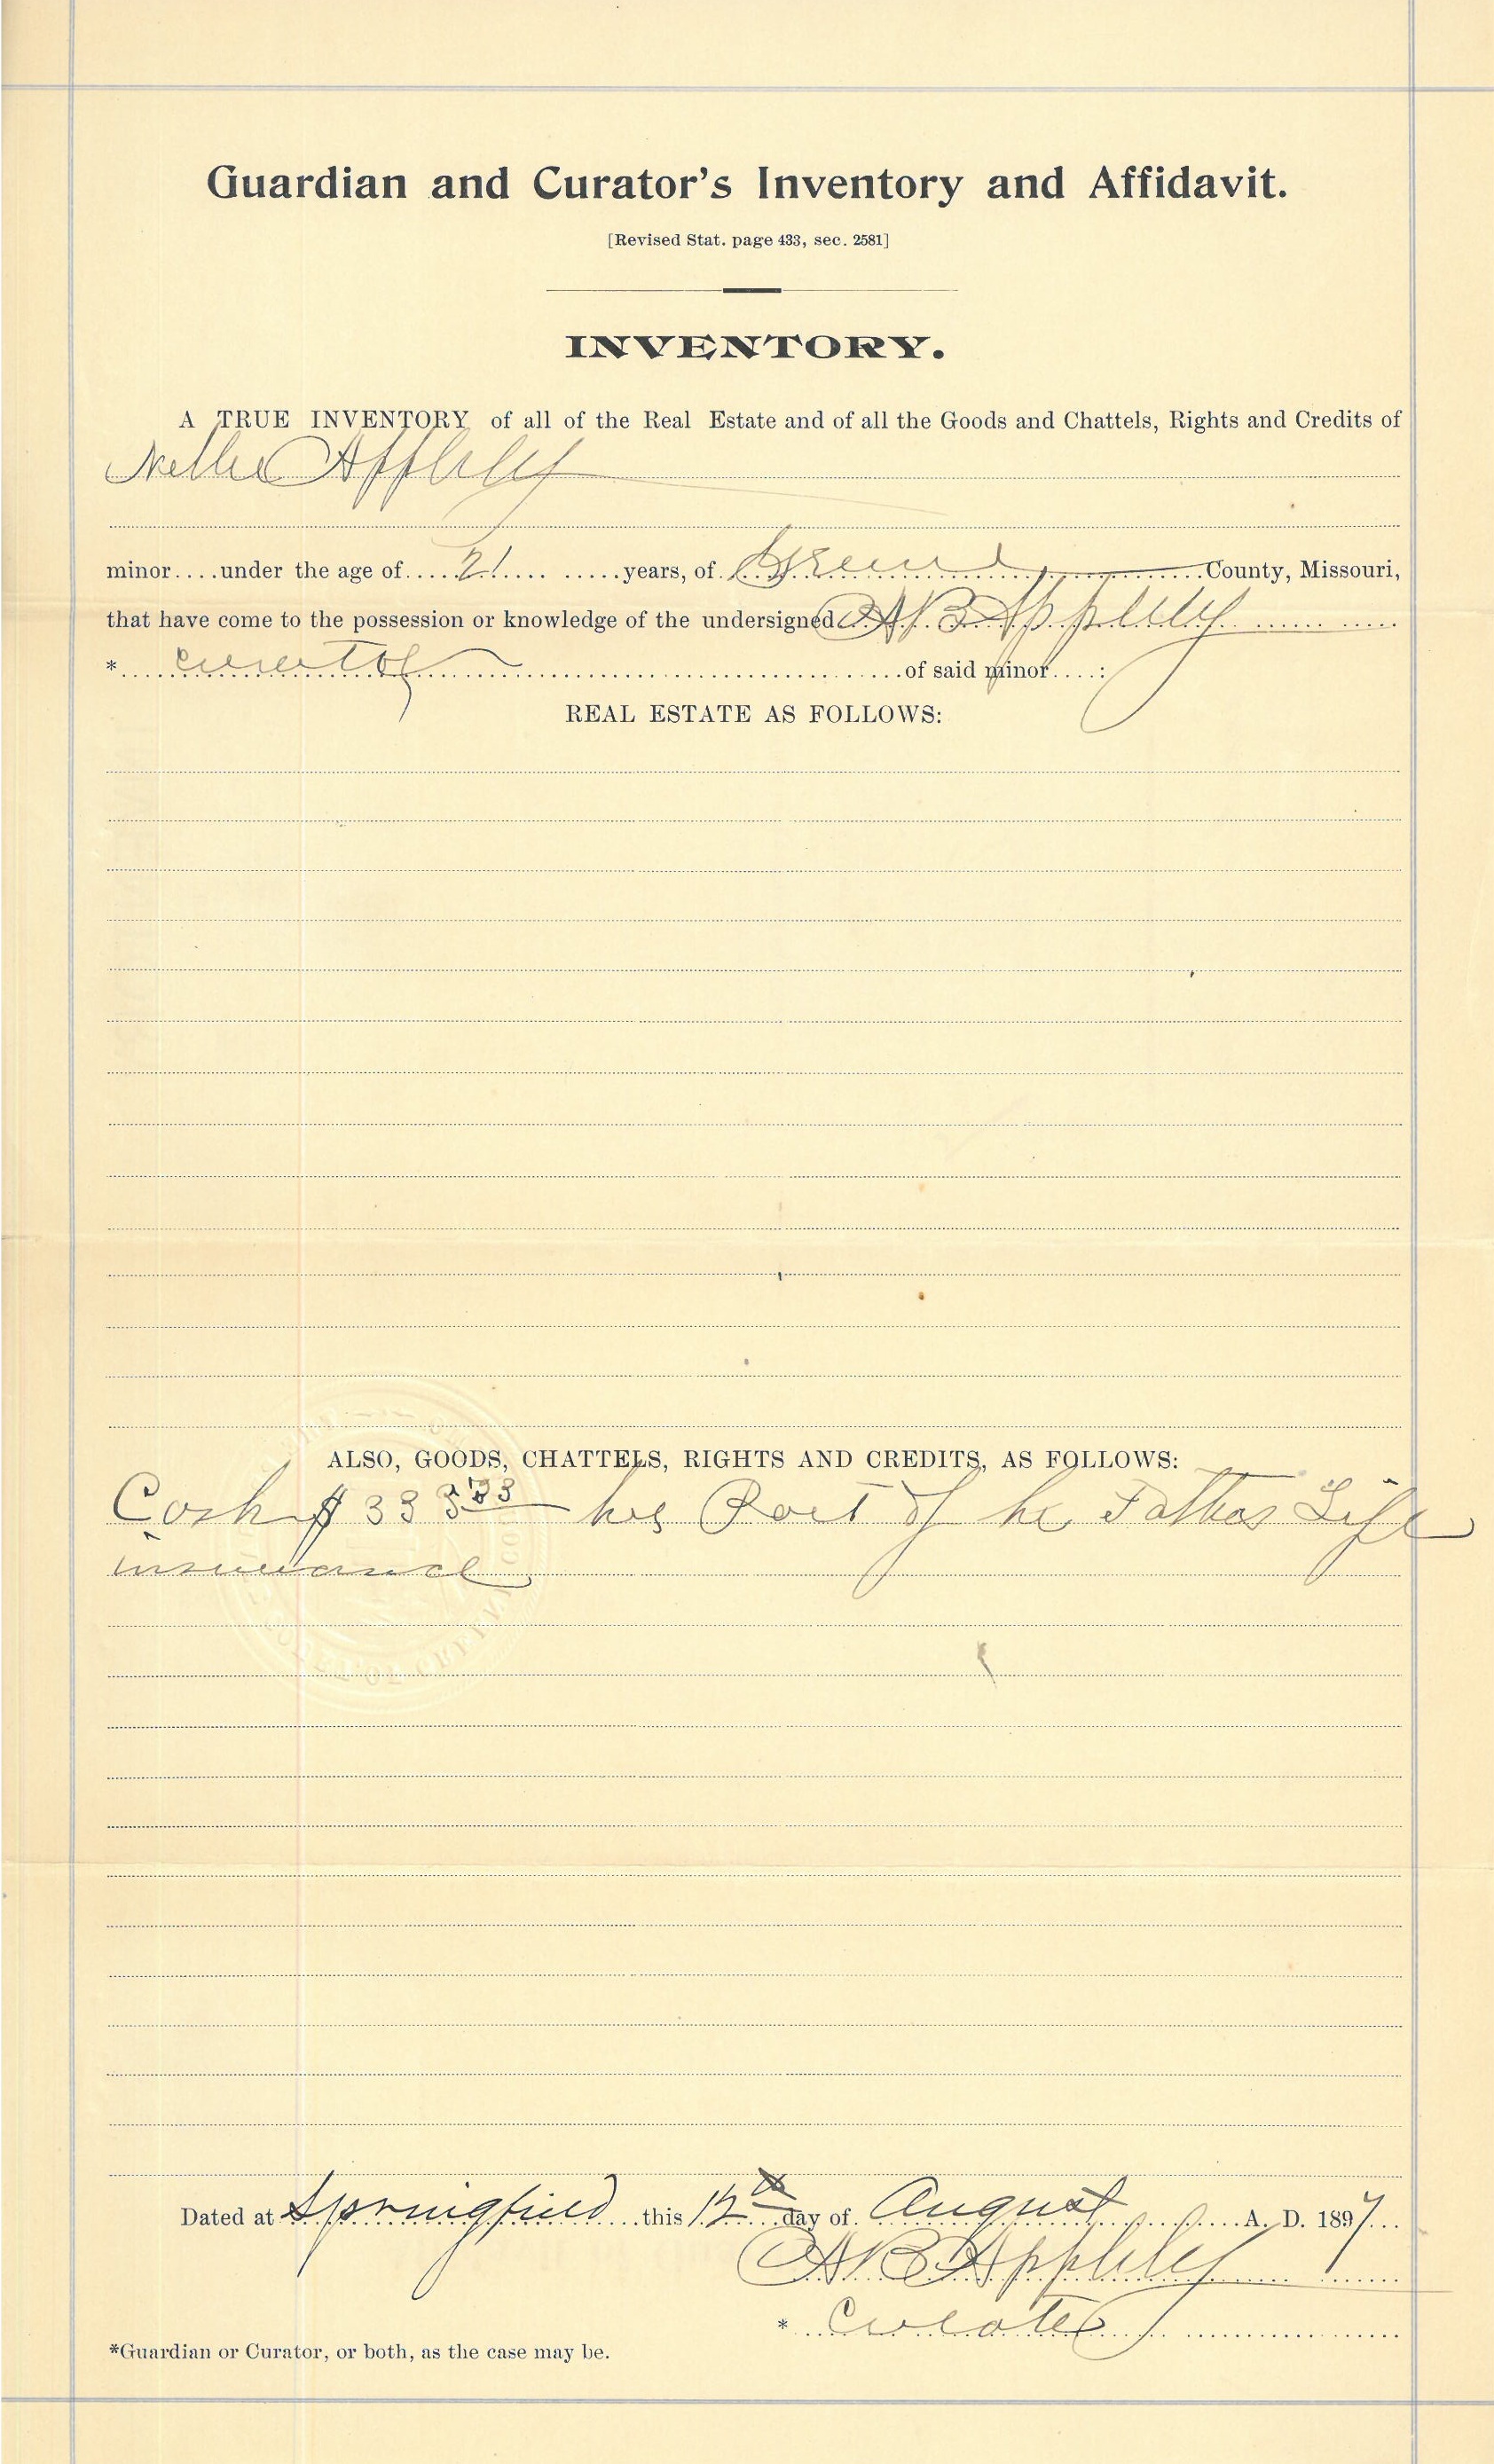 Guardian and Curator's Inventory and Affidavit.
[Revised Stat. page 433, sec. 2581]
INVENTORY.
A TRUE INVENTORY of all of the Real Estate and of all the Goods and Chattels, Rights and Credits of
Nellie Appleby
minor....under the age of....21.... .....years, of Greene County, Missouri,
that have come to the possession or knowledge of the undersigned A B Appleby
* curator of said minor....:
REAL ESTATE AS FOLLOWS:
ALSO, GOODS, CHATTELS, RIGHTS AND CREDITS, AS FOLLOWS:
Cash $ 333 33 her Part of her Fathers Life
insurance
Dated at Springfield this 12th day of August A. D. 1897
A B Appleby
* Curator
*Guardian or Curator, or both, as the case may be.